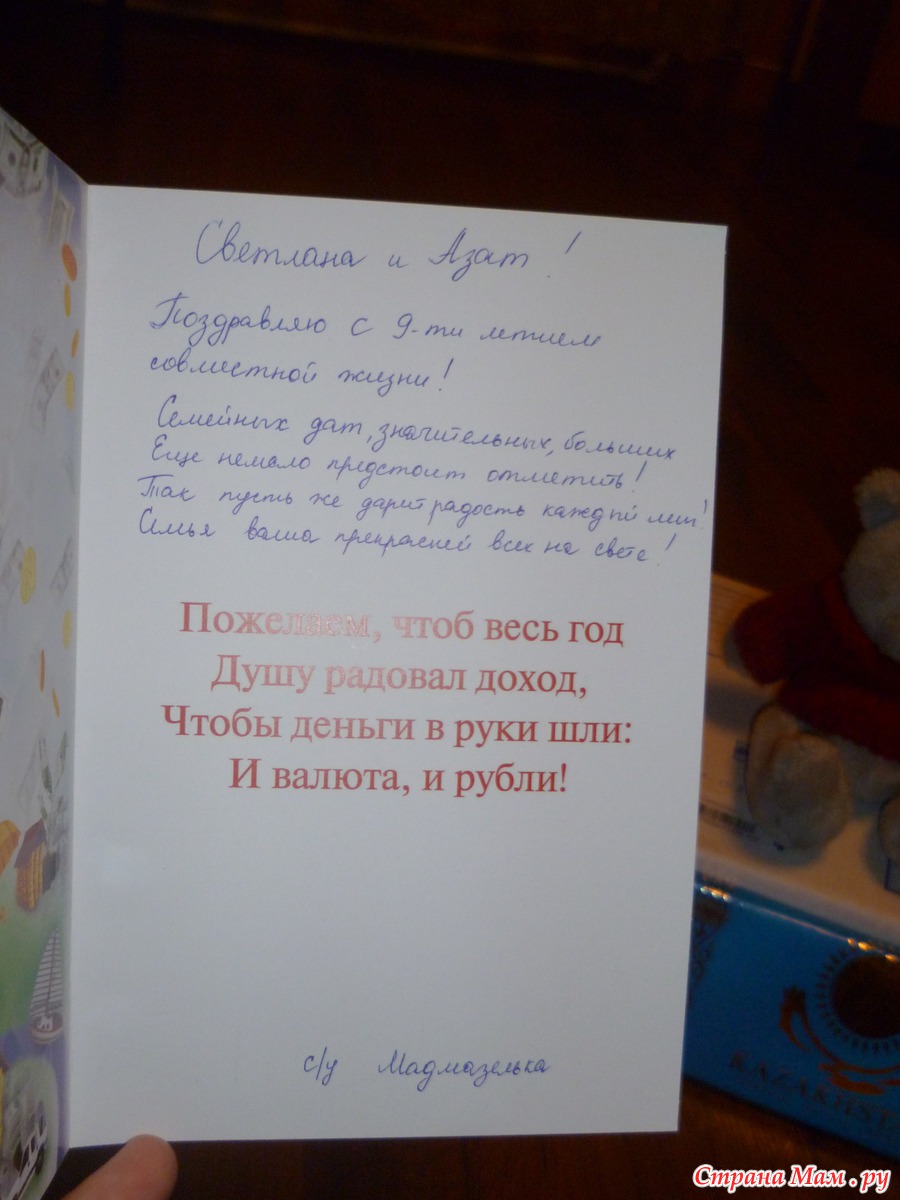 Светлана и Азат!
Поздравляю с 9-ти летием
совместной жизни!
Семейных дат, значительных, больших
Еще немало предстоит отметить!
Так пусть же дарит радость каждый миг!
Семья ваша прекрасней всех на свете!
Пожелаем, чтоб весь год
Душу радовал доход,
Чтобы деньги в руки шли:
И валюта, и рубли!
с/у Мадмазелька
KAZAKHST
Страна Мам.ру